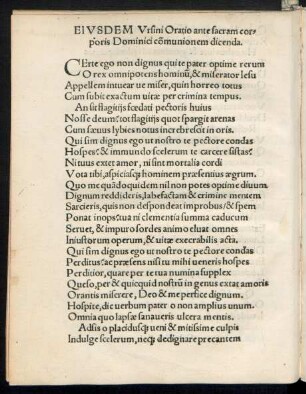 EIVSDEM Vrsini Oratio ante sacram cor/
poris Dominici cõmunionem dicenda.
CErte ego non dignus qui te pater optime rerum
O rex omnipotens hominũ, & miserator Iesu
Appellem intuear ue miser, quin horreo totus
Cum subit exactum uitæ per crimina tempus.
An sit flagitijs fœdati pectoris huius
Nosse deum: tot flagitijs quot spargit arenas
Cum sæuus lybies notus increbrescit in oris.
Qui sim dignus ego ut nostro te pectore condas
Hospes: & immundo scelerum te carcere sistas:
Ni tuus extet amor, ni sint mortalia cordi
Vota tibi, aspiciasq; hominem præsentius ægrum.
Quo me quãdoquidem nil non potes optime diuum
Dignum reddideris, labefactam & crimine mentem
Sarcieris, quis non despondeat improbus, & spem
Ponat inops: tua ni clementia summa caducum
Seruet, & impuro sordes animo eluat omnes
Iniustorum operum, & uitæ execrabilis acta.
Qui sim dignus ego ut nostro te pectore condas
Perditus: ac præsens nisi tu mihi ueneris hospes
Perditior, quare per te tua numina supplex
Quęso, per & quicquid nostrũ in genus extat amoris
Orantis miserere, Deo & me perfice dignum.
Hospite, dic uerbum pater o non amplius unum.
Omnia quo lapsæ sanaueris ulcera mentis.
Adsis o placidusq; ueni & mitissime culpis
Indulge scelerum, neq; dedignare precantem